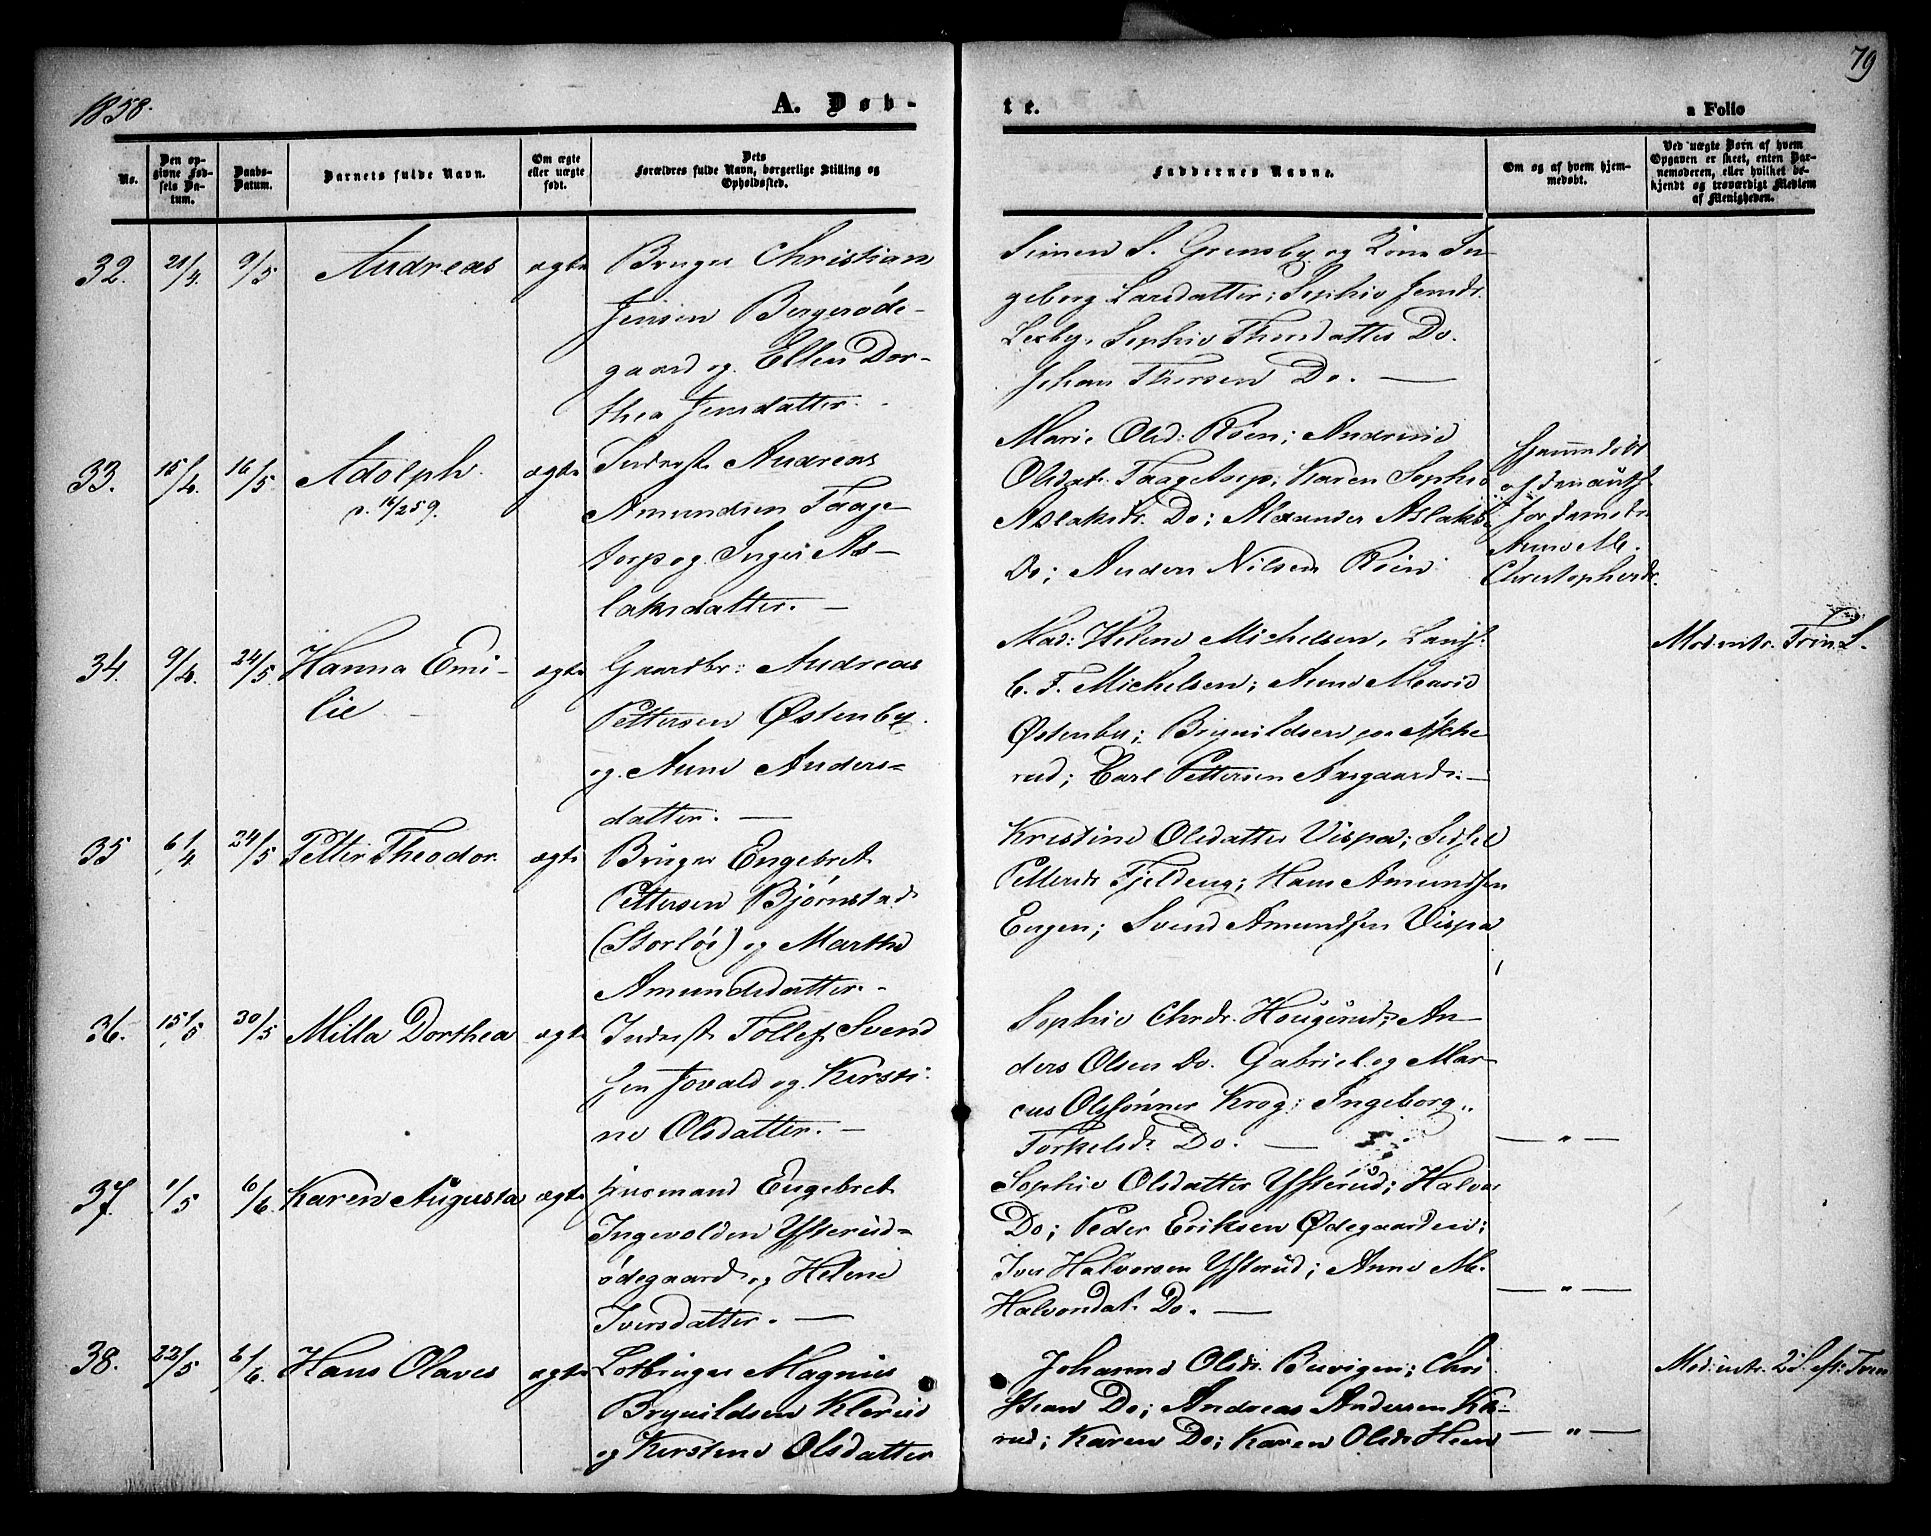 1858.
A. Døb-
te.
a Folio
79
No.
Den op-
givne Fød-
sels Da-
tum.
Daabs-
Datum.
Barnets fulde Navn.
Om ægte
eller uægte
født.
Dets
Forældres fulde Navn, borgerlige Stilling og
Opholdssted.
Faddernes Navne.
Om og af hvem hjem-
medøbt.
Ved uægte Børn af hvem
Opgaven er skeet, enten Bar-
nemoderen, eller hvilket be-
kjendt og troværdigt Medlem
af Menigheden.
32. 21/4. 9/5 Andreas ægte
Bruger Christian
Jensen Bergerøde-
gaard og Ellen Dor-
thea Jensdatter.
Simen S. Grensby og Kone In-
geborg Larsdatter; Sophie Jensdr.
Lexby, Sophie Thorsdatter Do.
Johan Thorsen Do. —
33. 15/4. 16/5 Adolph. ægte
Inderst Andreas
Amundsen Taage-
torp og Inger As-
laksdatter. —
Marie Olsd: Røen; Andrine
Olsdat. Taagetorp; Karen Sophie
Aslaksdr. Do; Alexander Aslaks.
Do; Anders Nilsen Røen
Hjemmedøbt
af
Jordemodr.
Anne M.
Christophersdr.
34. 9/4. 24/5. Hanna Emi-
lie ægte
Gaardbr: Andreas
Pettersen Østenby
og Anne Anders-
datter. —
Mad: Helene Michelsen,
C. F. Michelsen; Anne Marie
Østenby; Brynildsen
rud; Carl Pettersen Aasgaard. —
Mod. intr. Trin. S.
35 6/4 24/5 Petter Theodor. ægte
Bruger Engebret
Pettersen Bjørnstad
(Storløs) og Marthe
Amundsdatter. -
Kristine Olsdatter Vispa; Sidsel
Pettersdr. Fjeldeng; Hans Amundsen
Engen; Svend Amundsen Vispa
36. 15/5 30/5 Milla Dorthea ægte
Inderst Tollef Svend
sen Jovald og Kersti-
ne Olsdatter. —
Sophie Chrdr. Hougerud; An-
ders Olsen Do. Gabriel og Mar-
cus Olssønner Krog; Ingeborg
Torkelsdr. Do. —
— " —
37. 1/5 6/6. Karen Augusta ægte
Husmand Engebret
Ingevoldsen Ysterud-
ødegaard og Helene
Iversdatter. —
Sophie Olsdatter Ysterud; Halvor
Do; Peder Eriksen Ødegaarden;
Iver Halvorsen Ysterud; Anne M.
Halvorsdat. Do. —
— " —
38. 22/5 6/6. Hans Olaves ægte
Lodbruger Magnus
Brynildsen Klerud
og Kerstine Olsdatter
Johanne Olsdr. Buvigen; Chri
stian Do; Andreas Andersen Kle-
rud; Karen Do; Karen Olsdr.
— " —
Mod. intr. 2 S. eft. Trin